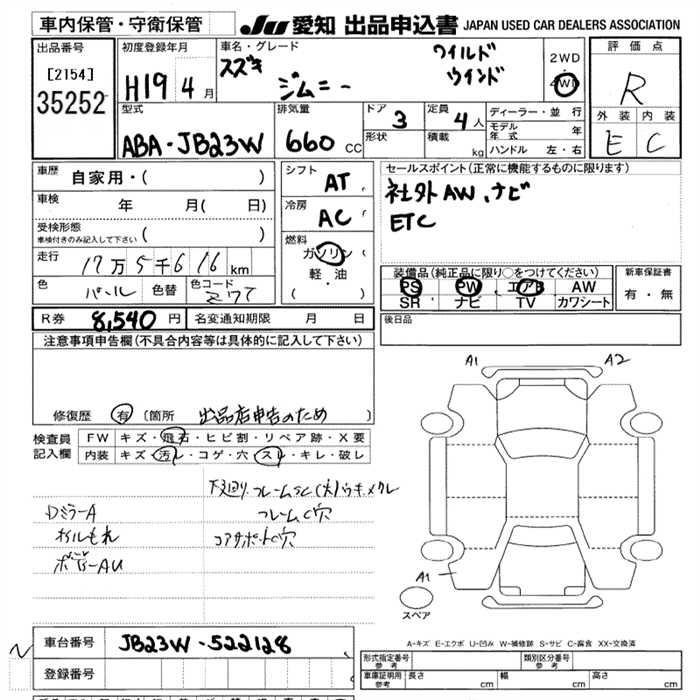 車内保管・守衛保管
JU 愛知 出品申込書 JAPAN USED CAR DEALERS ASSOCIATION
出品番号
[2154]
35252
初度登録年月
H19 4 月
車名・グレード
スズキ
ジムニー
ワイルド
ウインド
2WD
4WD
評価点
R
外装 内装
E C
型式
ABA-JB23W
排気量
660 CC
ドア
3
形状
定員
4 人
積載
kg
ディーラー・並行
モデル年式 年
ハンドル 左・右
車歴
自家用・( )
車検
年 月( 日)
受検形態
車検付きのみ記入して下さい ( )
走行
17万5千616 km
色
パール
色替
色コード
Z7T
シフト
AT
冷房
AC
燃料
ガソリン
軽・油
( )
セールスポイント(正常に機能するものに限ります)
社外AW、ナビ
ETC
装備品(純正品に限り○をつけてください)
PS PW エアB AW
SR ナビ TV カワシート
新車保証書
有・無
R券 8,540 円 名変通知期限 月 日
後日品
注意事項申告欄(不具合内容等は具体的に記入して下さい)
修復歴 有 (箇所 出品店申告のため )
検査員
記入欄
FW キズ・飛石・ヒビ割・リペア跡・X要
内装 キズ・汚レ・コゲ・穴・スレ・キレ・破レ
下廻り、フレームSC(大)ウキ、メクレ
DミラーA フレームC穴
オイルもれ コアサポートC穴
ボデーAU
A1 A2
A1
スペア
A-キズ E-エクボ U-凹み W-補修跡 S-サビ C-腐食 XX-交換済
車台番号 JB23W-522128
登録番号
形式指定番号
参考
類別区分番号
参考
車庫証明用
参考
長さ cm 幅 cm 高さ cm